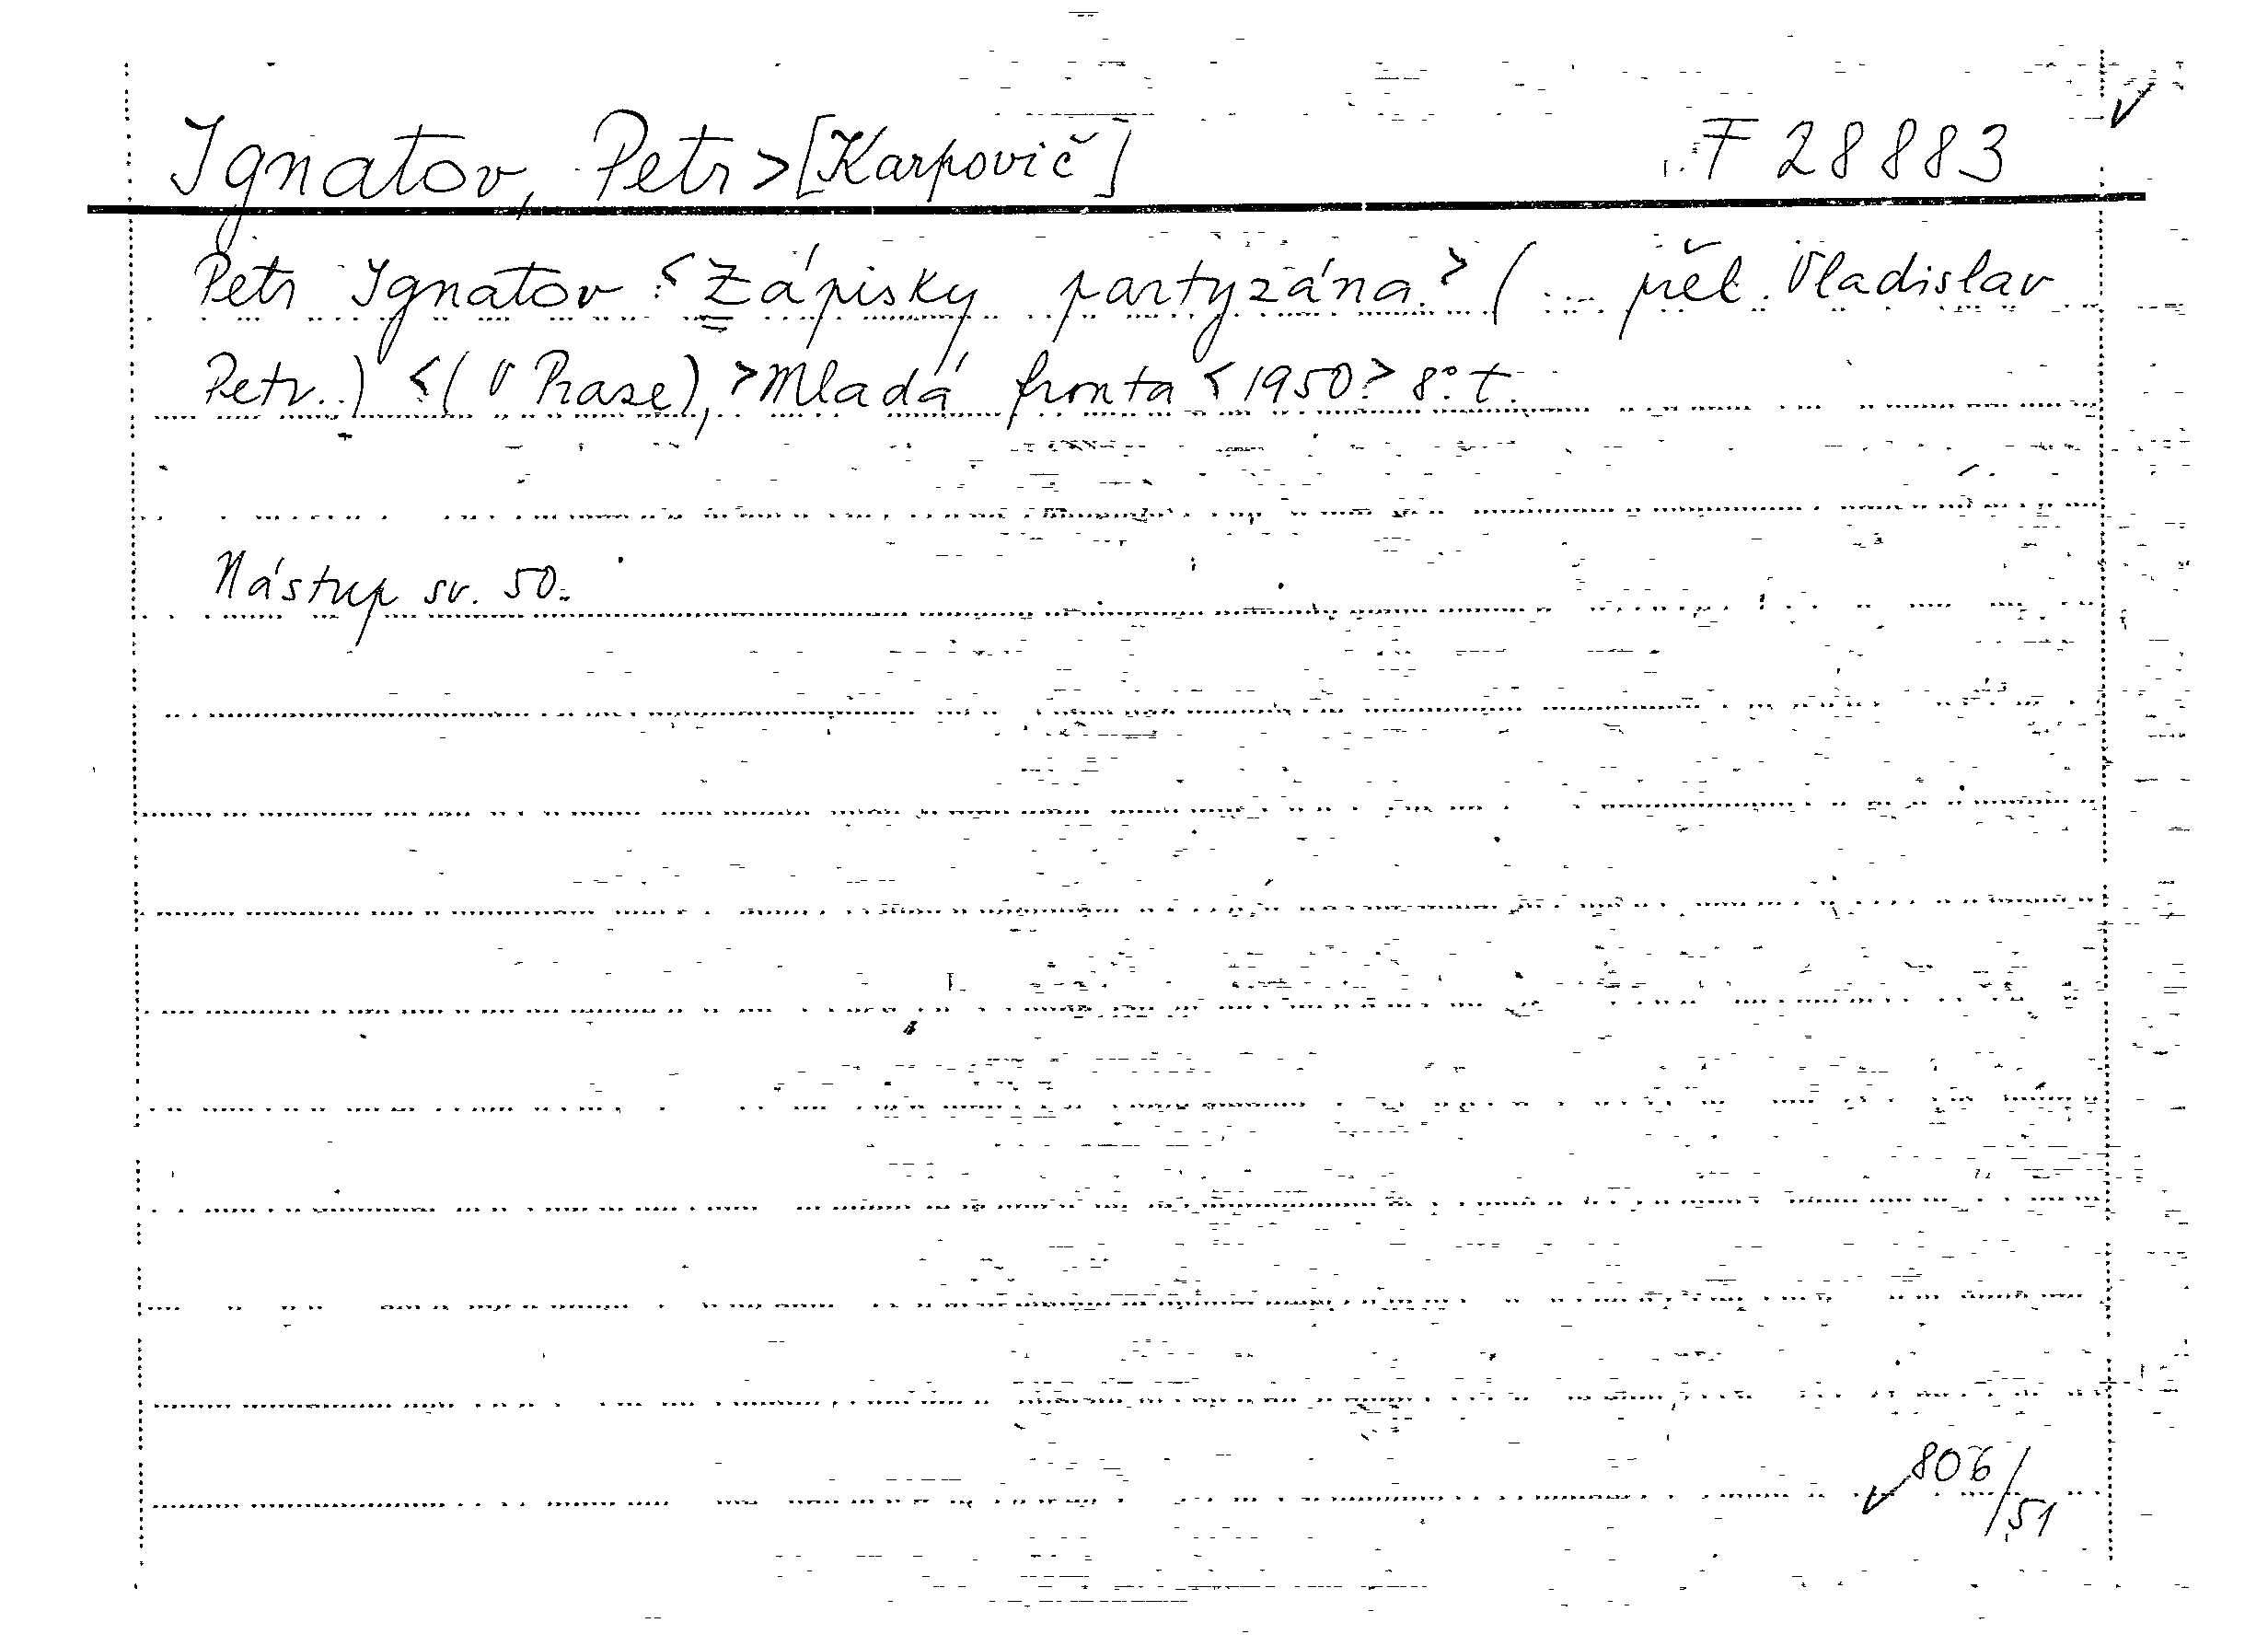 Ignatov, Petr > [Karpovič] F 28883
Petr Ignatov < Zápisky partyzána. > (... přel. Vladislav
Petr..) < (V Praze), > Mladá fronta < 1950 > 8° t.
Nástup sv. 50.
806/51